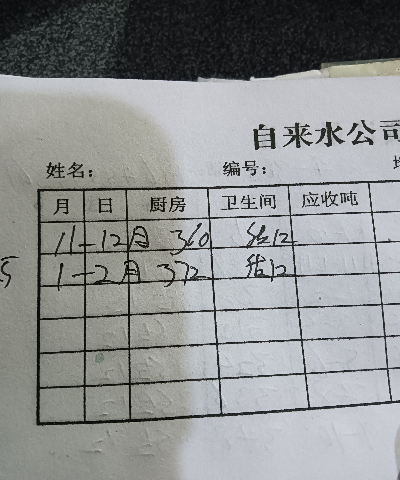 自来水公司
姓名： 编号：
月 日 厨房 卫生间 应收吨
11-12月 360
1-2月 372